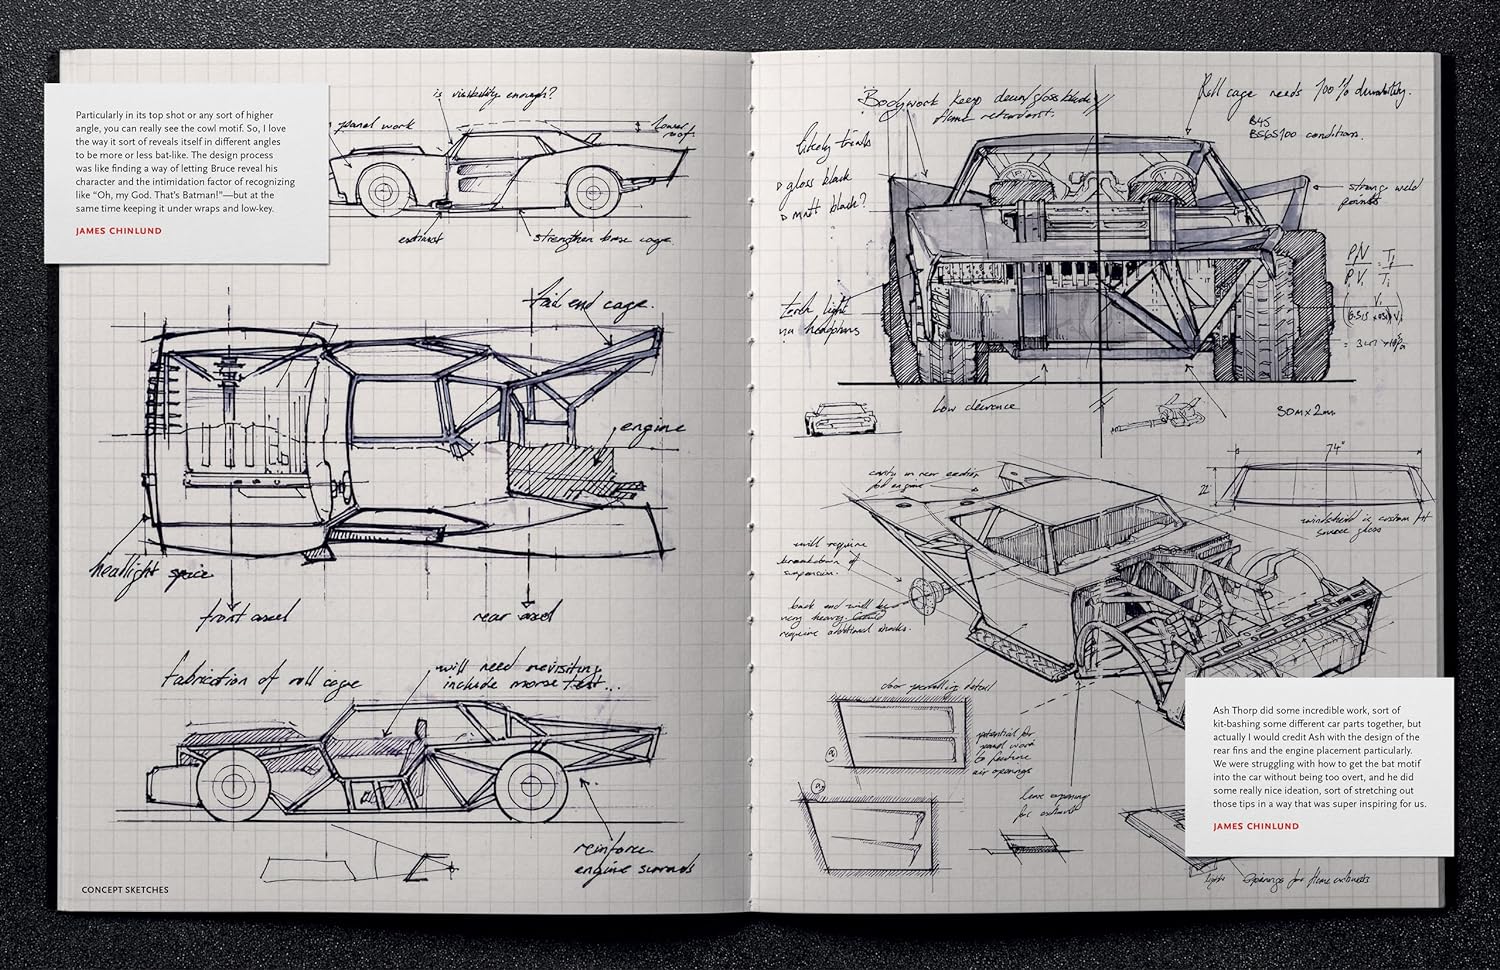 Particularly in its top shot or any sort of higher
angle, you can really see the cowl motif. So, I love
the way it sort of reveals itself in different angles
to be more or less bat-like. The design process
was like finding a way of letting Bruce reveal his
character and the intimidation factor of recognizing
like “Oh, my God. That’s Batman!”—but at the
same time keeping it under wraps and low-key.
JAMES CHINLUND
is visibility enough?
panel work
lower
roof.
exhaust
strengthen base cage.
tail end cage.
engine
headlight space
front axel
rear axel
fabrication of roll cage
will need revisiting
include morse test...
reinforce
engine surrounds
CONCEPT SKETCHES
Bodywork keep down gloss black
flame retardent.
Roll cage needs 100% durability.
BS6S100 condition.
likely trials
gloss black
matt black?
strong weld
points
low clearence
50m x 2m
74"
22"
windshield is custom fit
source glass
will require
breakdown of
suspension.
back end will be
very heavy. Could
require additional shocks.
door panelling detail
potential for
panel work
to feature
air openings
leave opening
for exhaust
openings for flame exhausts
Ash Thorp did some incredible work, sort of
kit-bashing some different car parts together, but
actually I would credit Ash with the design of the
rear fins and the engine placement particularly.
We were struggling with how to get the bat motif
into the car without being too overt, and he did
some really nice ideation, sort of stretching out
those tips in a way that was super inspiring for us.
JAMES CHINLUND